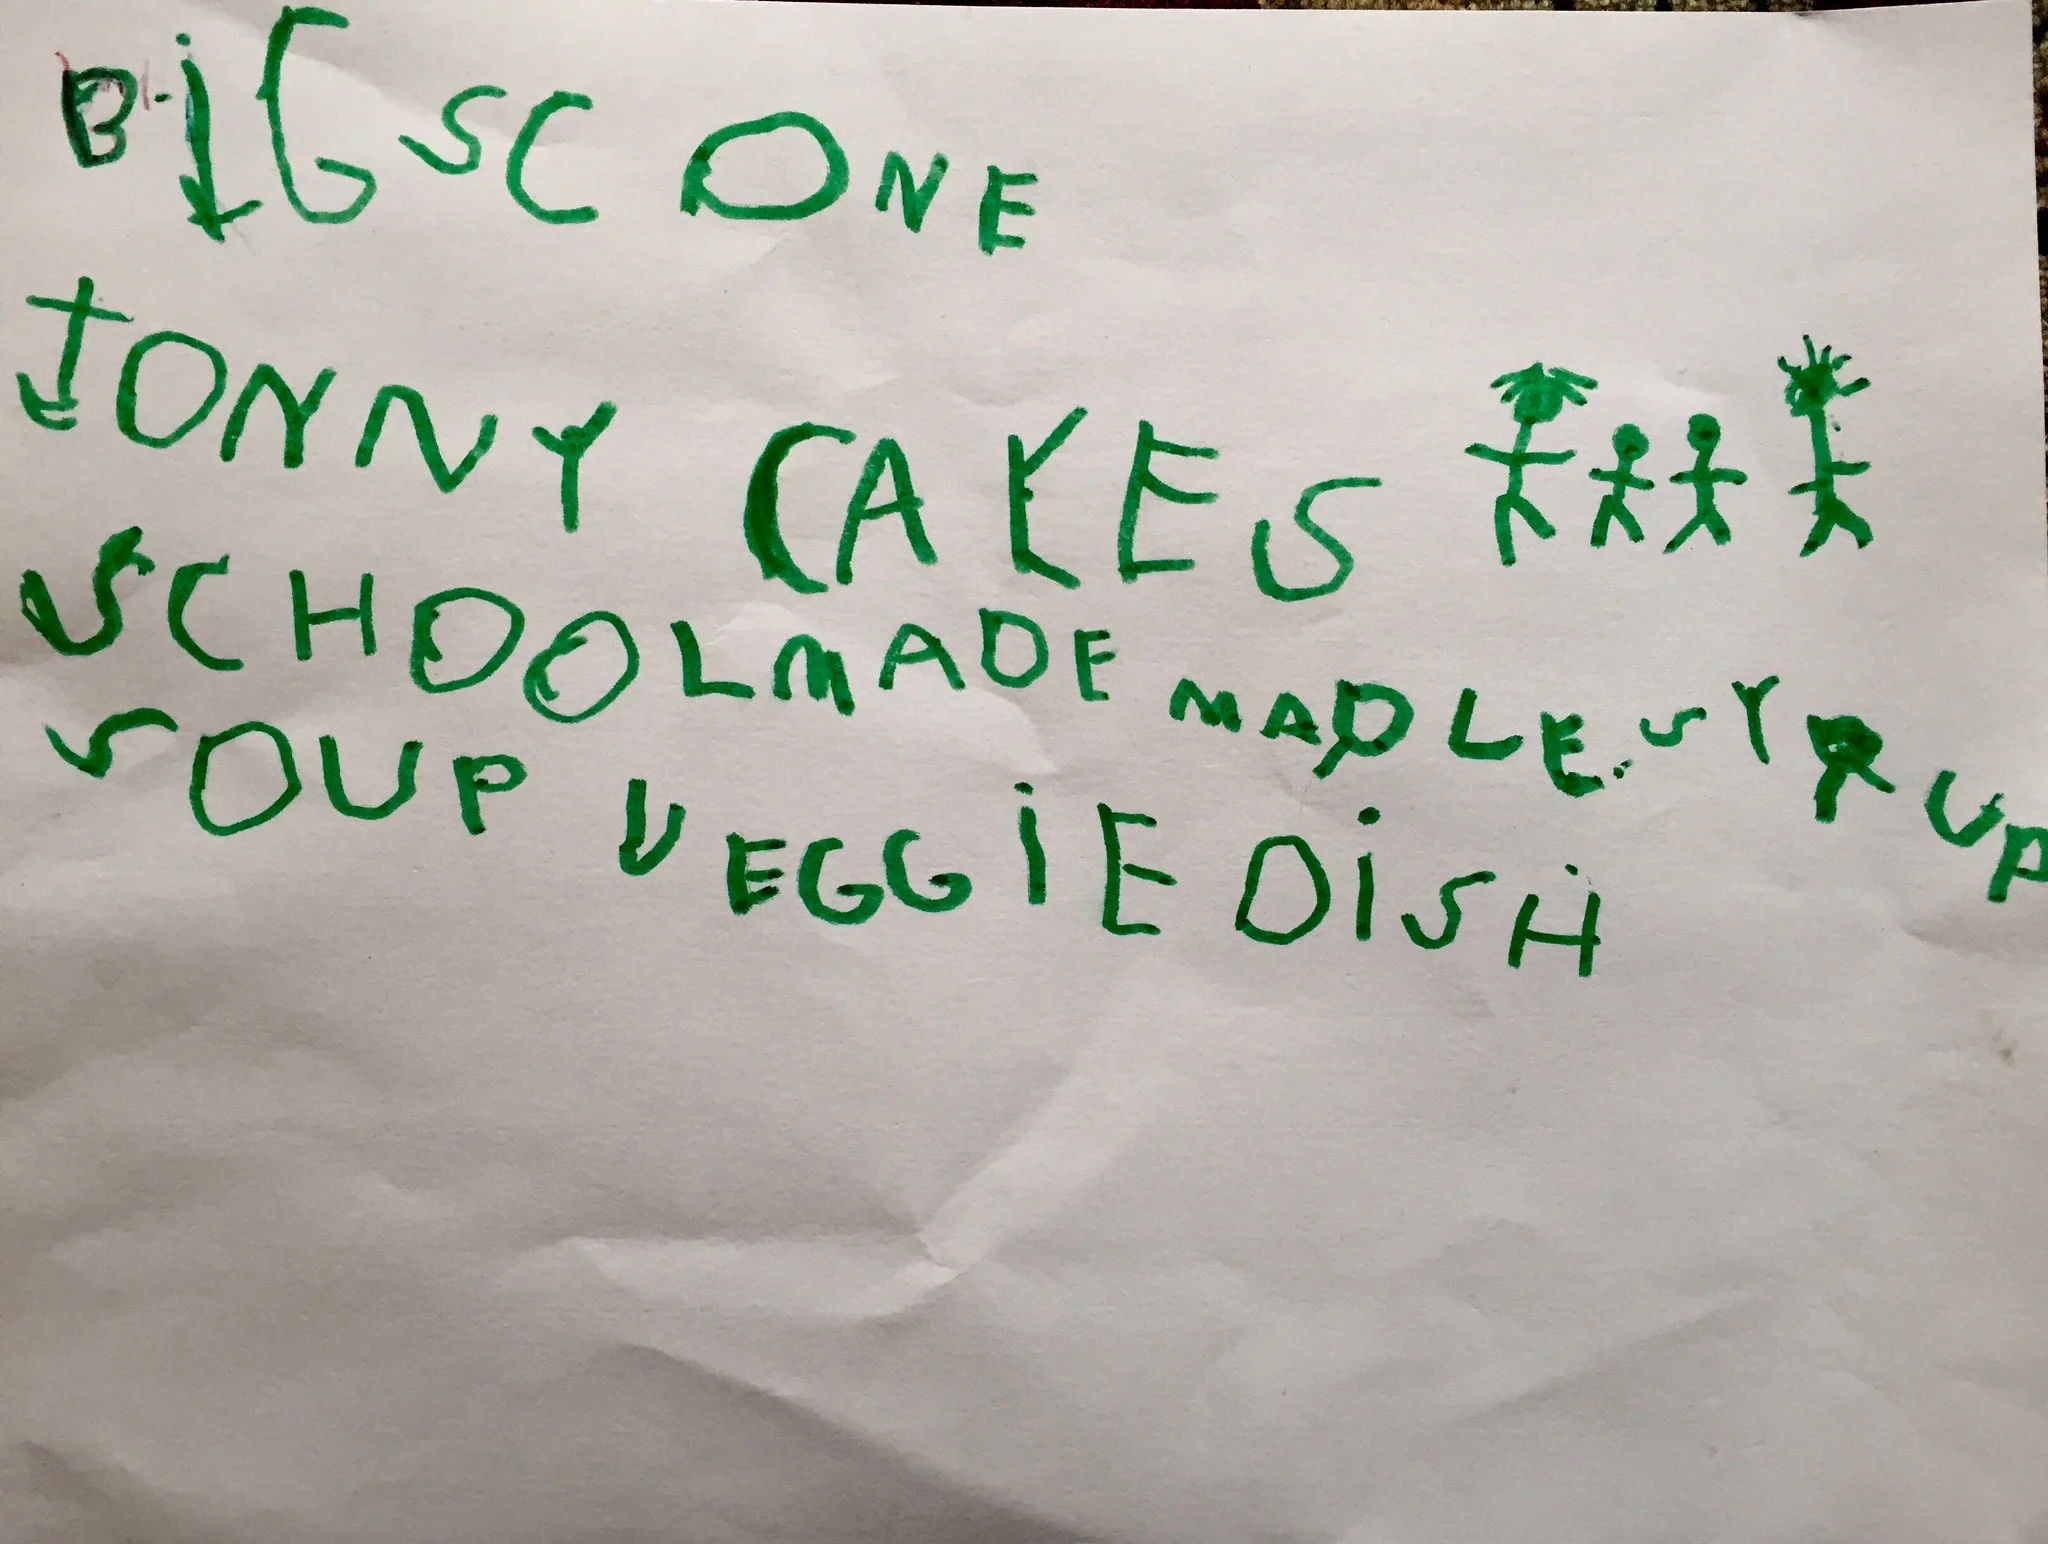 BiG SCONE
JONNY CAKES
SCHOOLMADE MAPLE SYRUP
SOUP VEGGiE DiSH